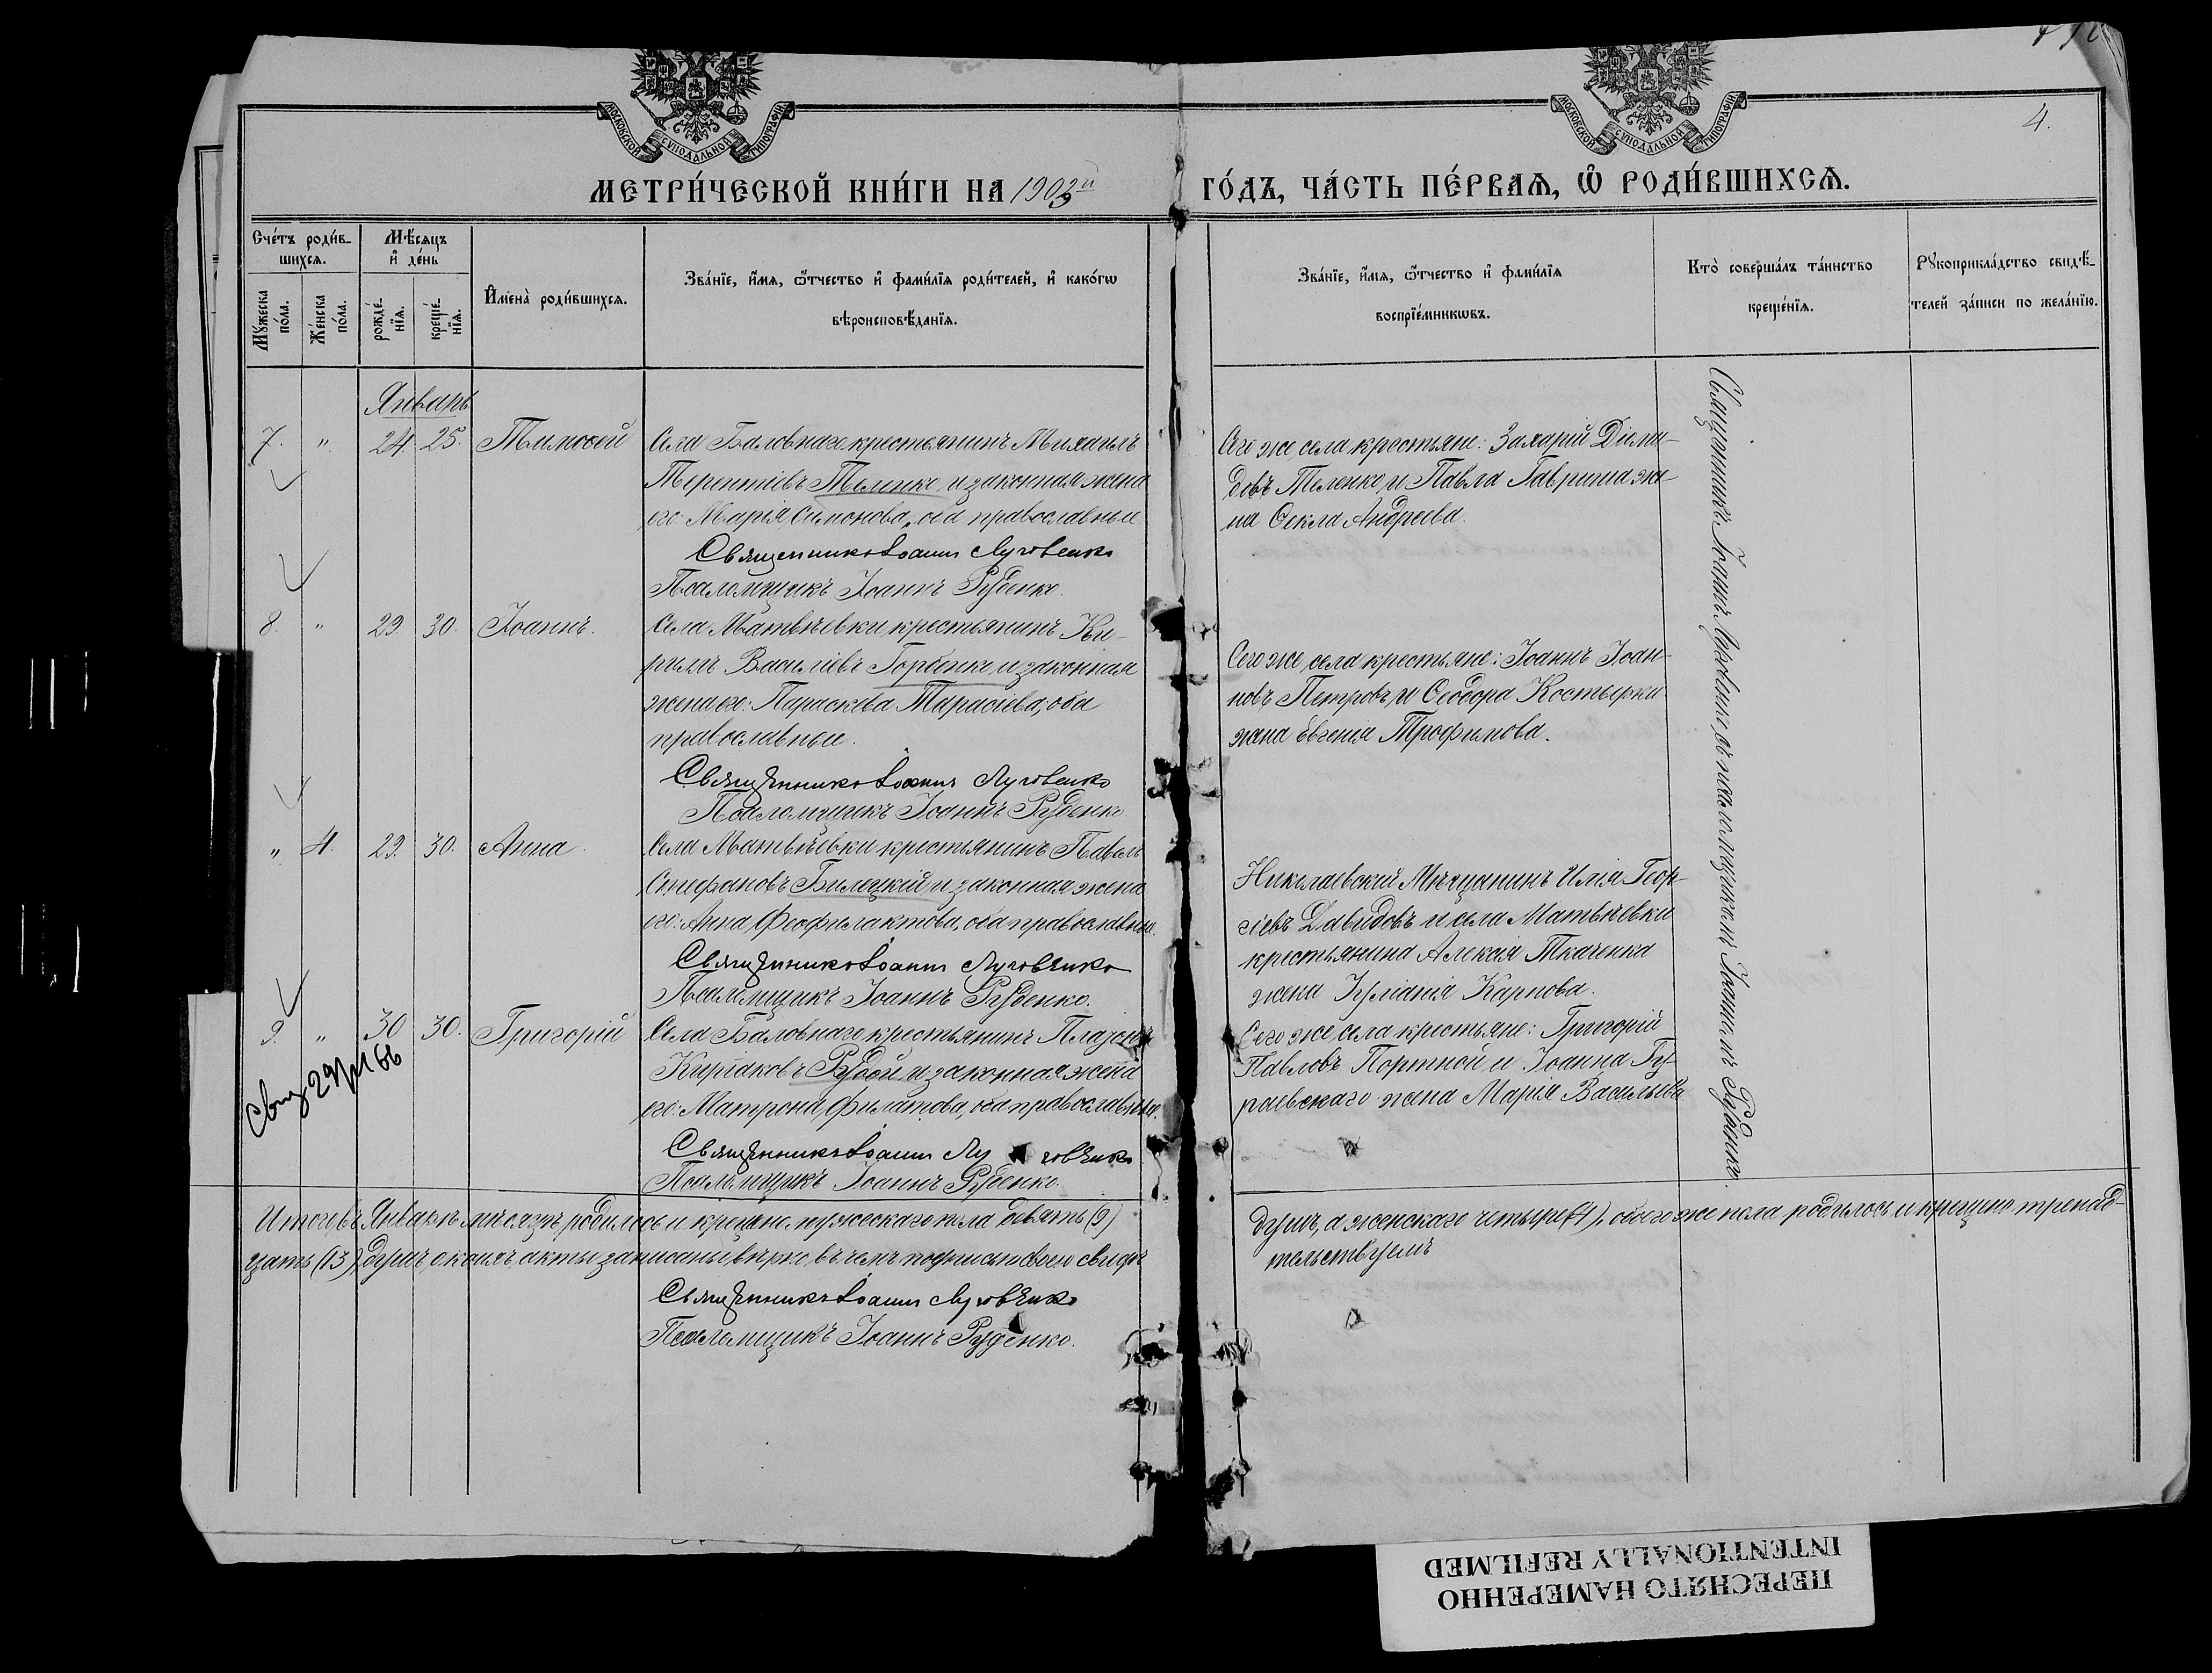 МОСКОВСКОЙ СѴНОДАЛЬНОЙ ТИПОГРАФІИ
МОСКОВСКОЙ СѴНОДАЛЬНОЙ ТИПОГРАФІИ
4.
МЕТРИ́ЧЕСКОЙ КНИ́ГИ НА 1903й ГО́ДЪ, ЧА́СТЬ ПЕ́РВАѦ, Ѡ҆ РОДИ́ВШИХСѦ.
Сче́тъ роди́в-
шихсѧ.
Мѣ́сѧцъ
и҆ де́нь
Мꙋ́жеска
по́ла.
Же́нска
по́ла.
рожде́-
нїѧ.
креще́-
нїѧ.
И҆мена̀ роди́вшихсѧ.
Зва́нїе, и҆́мѧ, ѻ҆́тчество и҆ фами́лїѧ роди́телей, и҆ како́гѡ
вѣроисповѣ́данїѧ.
Зва́нїе, и҆́мѧ, ѻ҆́тчество и҆ фами́лїѧ
воспрїе́мникѡвъ.
Кто̀ соверша́лъ та́инство
креще́нїѧ.
Рꙋкоприкла́дство свидѣ́-
телей за́писи по жела́нїю.
Январь
7. " 24. 25. Тимофей Села Баловнаго крестьянинъ Михаилъ
Терентіевъ Теленко и законная жена
его: Марія Симонова, оба православные.
Священникъ Іоаннъ Луговенко
Псаломщикъ Іоаннъ Руденко.
Сего же села крестьяне: Захарій Діоми-
довъ Теленко и Павла Гавриша же-
на Ѳекла Андреева.
8. " 29. 30. Іоаннъ. Села Матвѣевки крестьянинъ Ки-
риллъ Василіевъ Горбенко и законная
жена его: Параскева Тарасіева, оба
православные.
Священникъ Іоаннъ Луговенко
Псаломщикъ Іоаннъ Руденко.
Сего же села крестьяне: Іоаннъ Іоан-
новъ Петровъ и Ѳеодора Костырки
жена Евгенія Трофимова.
" 4. 29. 30. Анна. Села Матвѣевки крестьянинъ Павелъ
Стефановъ Билецкій и законная жена
его: Анна Феофилактова, оба православные.
Священникъ Іоаннъ Луговенко
Псаломщикъ Іоаннъ Руденко.
Николаевскій Мѣщанинъ Илія Геор-
гіевъ Давидовъ и села Матвѣевки
крестьянина Алексія Ткаченка
жена Іуліанія Карпова.
9. " 30 30. Григорій Села Баловнаго крестьянинъ Платонъ
Киріаковъ Рудой и законная жена
его: Матрона Филатова, оба православные.
Священникъ Іоаннъ Луговенко
Псаломщикъ Іоаннъ Руденко.
Сего же села крестьяне: Григорій
Павловъ Портной и Іоанна Гу-
раевскаго жена Марія Васильева.
Священникъ Іоаннъ Луговенко съ псаломщикомъ Іоанномъ Руденко.
Итого въ Январѣ мѣсяцѣ родилось и крещено мужескаго пола девять (9) душъ, а женскаго четыре (4), обоего же пола родилось и крещено тренад-
цать (13) душъ, о коихъ акты записаны вѣрно, въ чемъ подписью своею свидѣ-
тельствуемъ
Священникъ Іоаннъ Луговенко
Псаломщикъ Іоаннъ Руденко.
ПЕРЕСНЯТО НАМЕРЕННО
INTENTIONALLY REFILMED